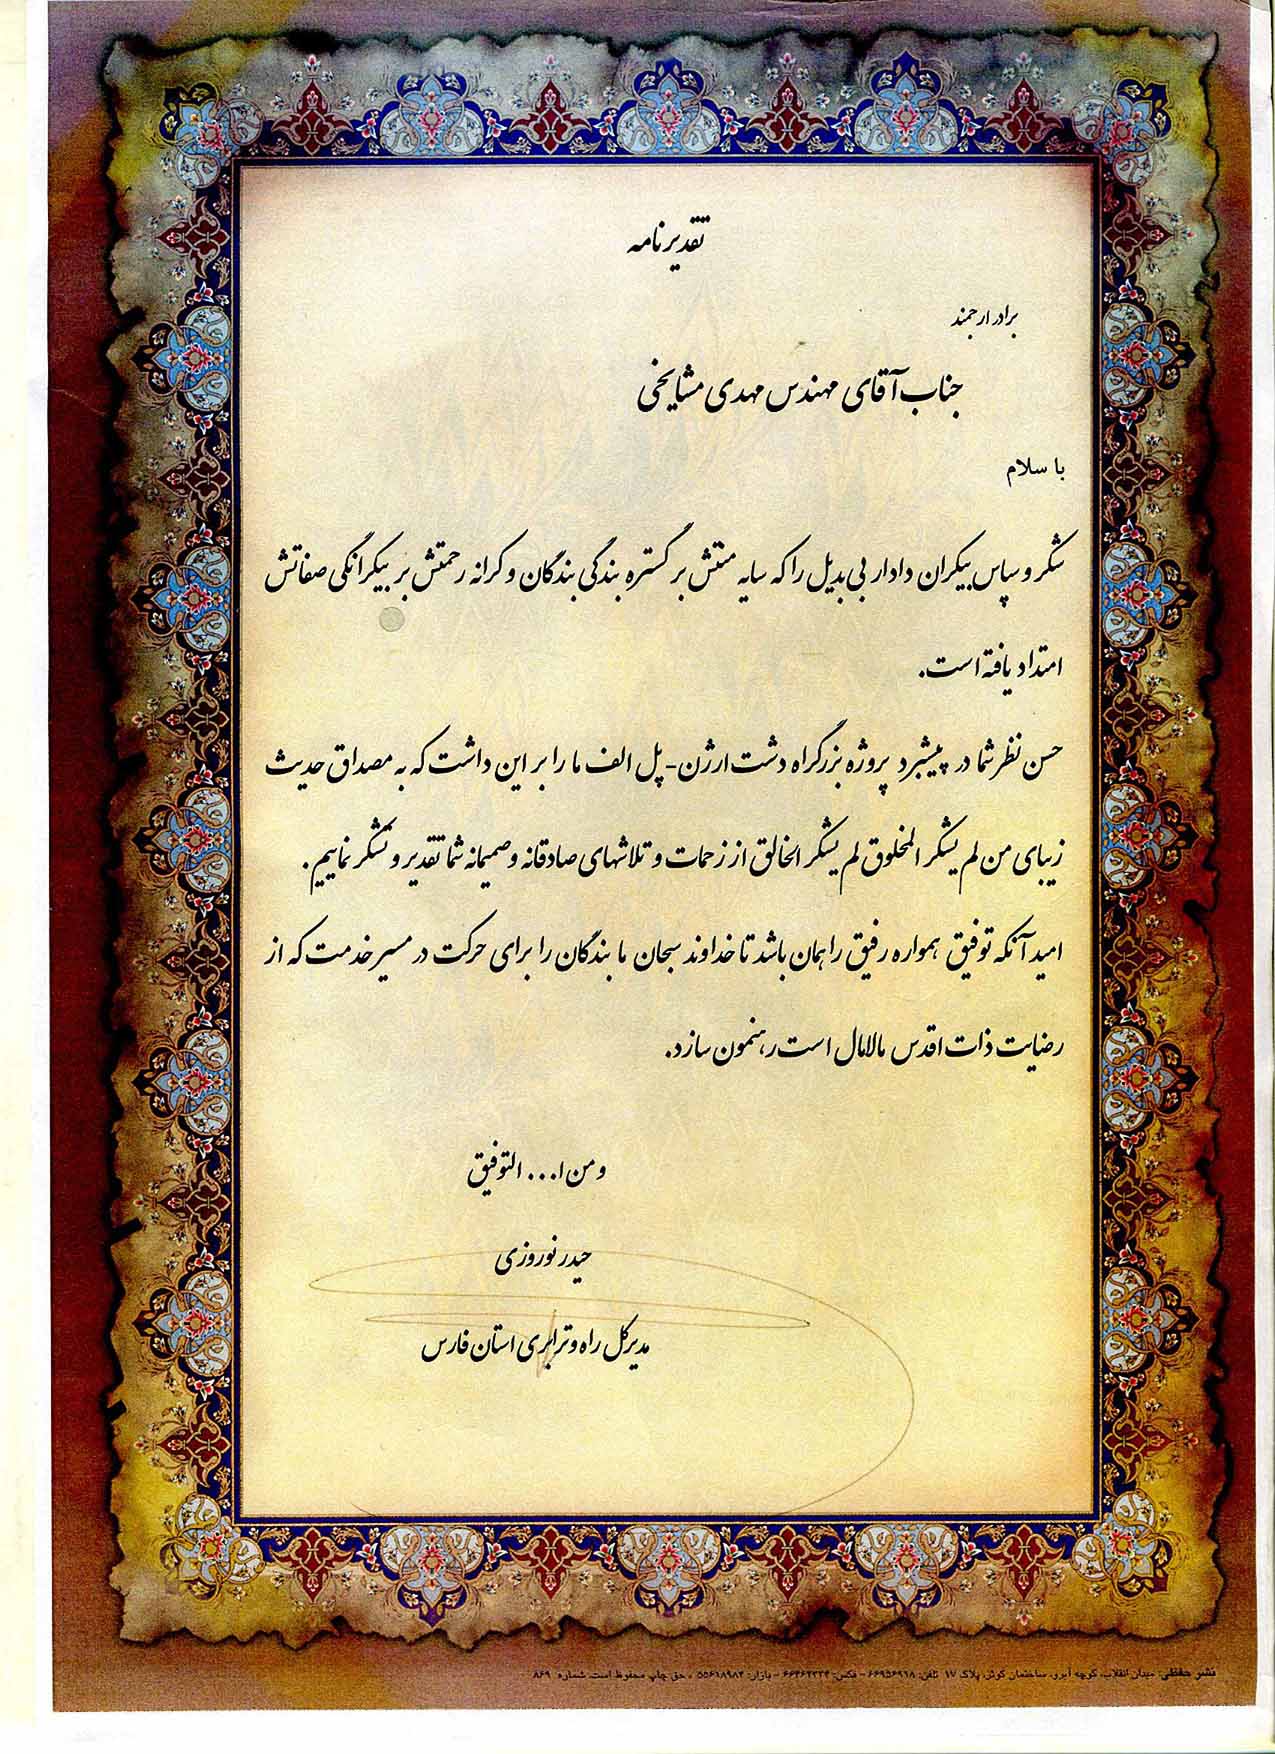 تقدیر نامه
برادر ارجمند
جناب آقای مهندس مهدی مشایخی
با سلام
شکر و سپاس بیکران دادار بی بدیل را که سایه منتش بر گستره بندگی بندگان و کرانه رحمتش بر بیکرانگی صفاتش
امتداد یافته است.
حسن نظر شما در پیشبرد پروژه بزرگراه دشت ارژن- پل الف ما را بر این داشت که به مصداق حدیث
زیبای من لم یشکر المخلوق لم یشکر الخالق از زحمات و تلاشهای صادقانه و صمیمانه شما تقدیر و تشکر نماییم.
امید آنکه توفیق همواره رفیق راهمان باشد تا خداوند سبحان ما بندگان را برای حرکت در مسیر خدمت که از
رضایت ذات اقدس مالامال است رهنمون سازد.
و من ا... التوفیق
حیدر نوروزی
مدیرکل راه و ترابری استان فارس
نشر حافظی: میدان انقلاب، کوچه آبرو، ساختمان کوثر، پلاک ۱۷ تلفن: ۶۶۹۵۶۹۱۸ - فکس: ۶۶۴۶۲۳۳۴ - بازار: ۵۵۶۱۸۹۸۲ ، حق چاپ محفوظ است. شماره ۸۶۹